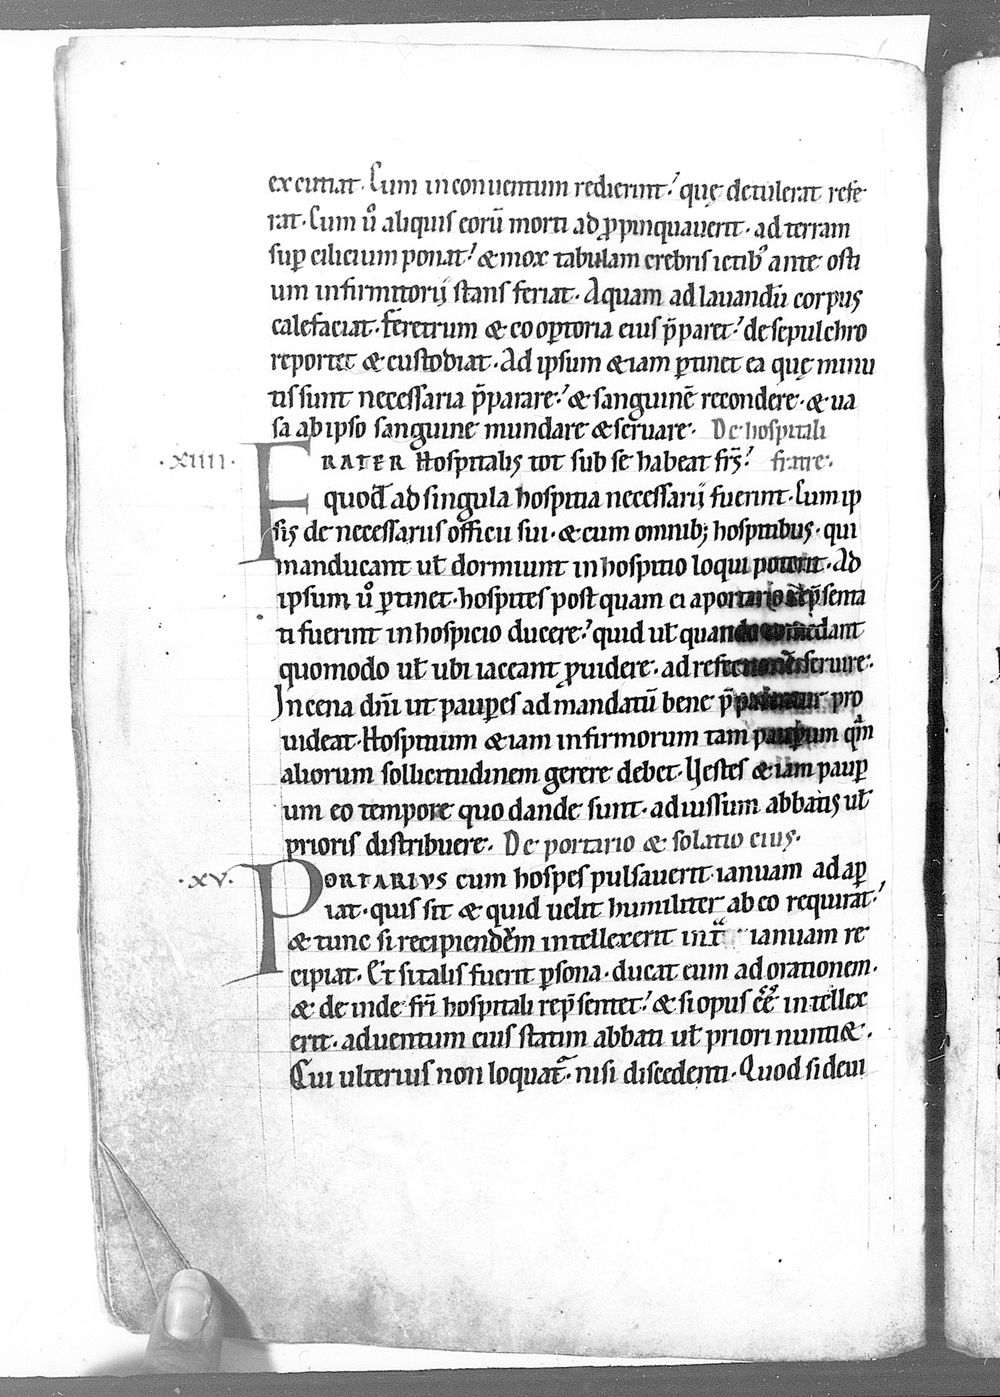 excutiat. Cum in conuentum redierint? quę detulerat refe
rat. Cum u͛o aliquis eorū morti ad ꝓpinquauerit. ad terram
suꝑ cilicium ponat? & mox tabulam crebris ictibꝰ ante osti
um infirmitorij stans feriat. Aquam ad lauandū corpus
calefaciat. Feretrum & cooꝑtoria eius p̄paret? de sepulchro
reportet & custodiat. Ad ipsum &iam ꝑtinet ea quę minu
tis sunt necessaria p̄parare? & sanguinē recondere. & ua
sa ab ipso sanguine mundare & seruare. De hospitali
.xiiii. FRATER Hospitalis tot sub se habeat fr̄s? fratre.
quod ad singula hospitia necessarij fuerint. Cum ip
sis de necessariis officii sui. & cum omnib; hospitibus. qui
manducant uł dormiunt in hospitio loqui poterit. Ad
ipsum u͛o ꝑtinet. hospites post quam ei a portario rep̄senta
ti fuerint in hospicio ducere? quid uł quando comedant
quomodo uł ubi iaceant ꝓuidere. ad refectionē seruire.
In cena dn̄i ut pauꝑes ad mandatū bene p̄parentur pro
uideat. Hospitium &iam infirmorum tam pauꝑum qm̄
aliorum sollicitudinem gerere debet. Uestes &iam pauꝑ
um eo tempore quo dande sunt. ad iussum abbatis uł
prioris distribuere. De portario & solatio eius.
.xv. PORTARIVS cum hospes pulsauerit ianuam adaꝑ
iat. quis sit & quid uelit humiliter ab eo requirat?
& tunc si recipiendum intellexerit int̄ ianuam re
cipiat. Et si talis fuerit ꝑsona. ducat eum ad orationem.
& deinde fr̄i hospitali rep̄sentet? & si opus ēē intellex
erit. aduentum eius statim abbati uł priori nunti&.
Cui ulterius non loquat᷑. nisi discedenti. Quod si deui